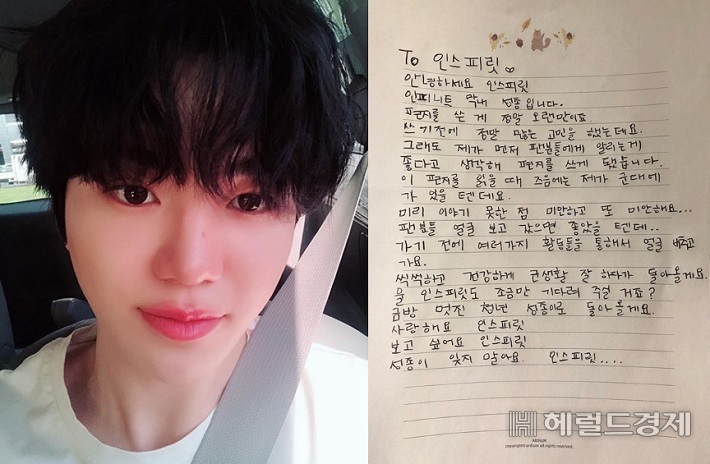 To 인스피릿
안녕하세요 인스피릿
인피니트 막내 성종입니다.
편지를 쓴 게 정말 오랜만이죠
쓰기전에 정말 많은 고민을 했는데요.
그래도 제가 먼저 팬분들에게 알리는게
좋다고 생각해 편지를 쓰게 됐습니다.
이 편지를 읽을 때 즈음에는 제가 군대에
가 있을 텐데요.
미리 이야기 못한 점 미안하고 또 미안해요...
팬분들 얼굴 보고 갔으면 좋았을 텐데..
가기 전에 여러가지 활동들을 통해서 얼굴 비추고
가요.
씩씩하고 건강하게 군생활 잘 하다가 돌아올게요.
울 인스피릿도 조금만 기다려 주실 거죠?
금방 멋진 청년 성종이로 돌아올게요.
사랑해요 인스피릿
보고 싶어요 인스피릿
성종이 잊지 말아요. 인스피릿....
헤럴드경제